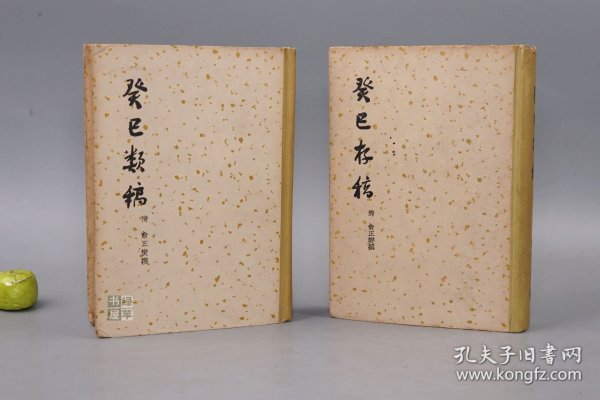 癸巳類稿
清 俞正燮撰
癸巳存稿
清 俞正燮撰
书屋
孔夫子旧书网
www.kongfz.com